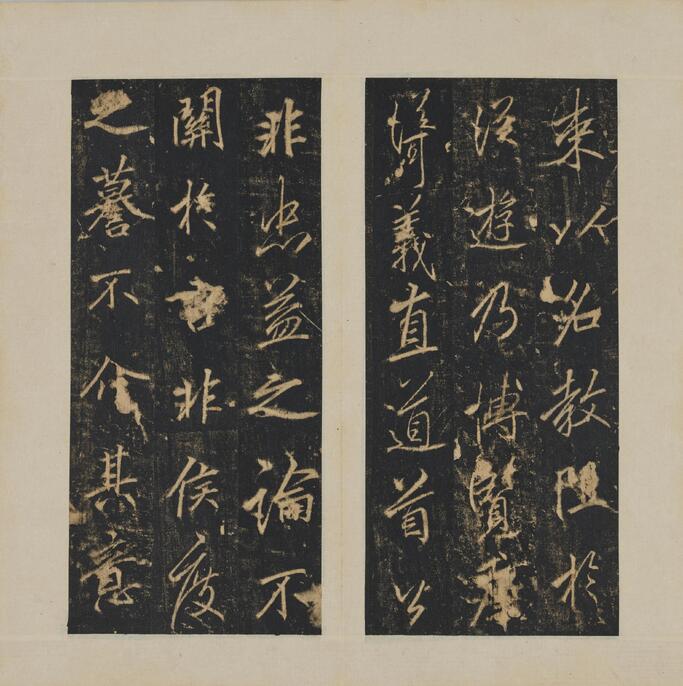 束以名教阻於
從遊乃博覽羣
義直道首公
非忠益之論不
關於言非侯度
之謩不介其意